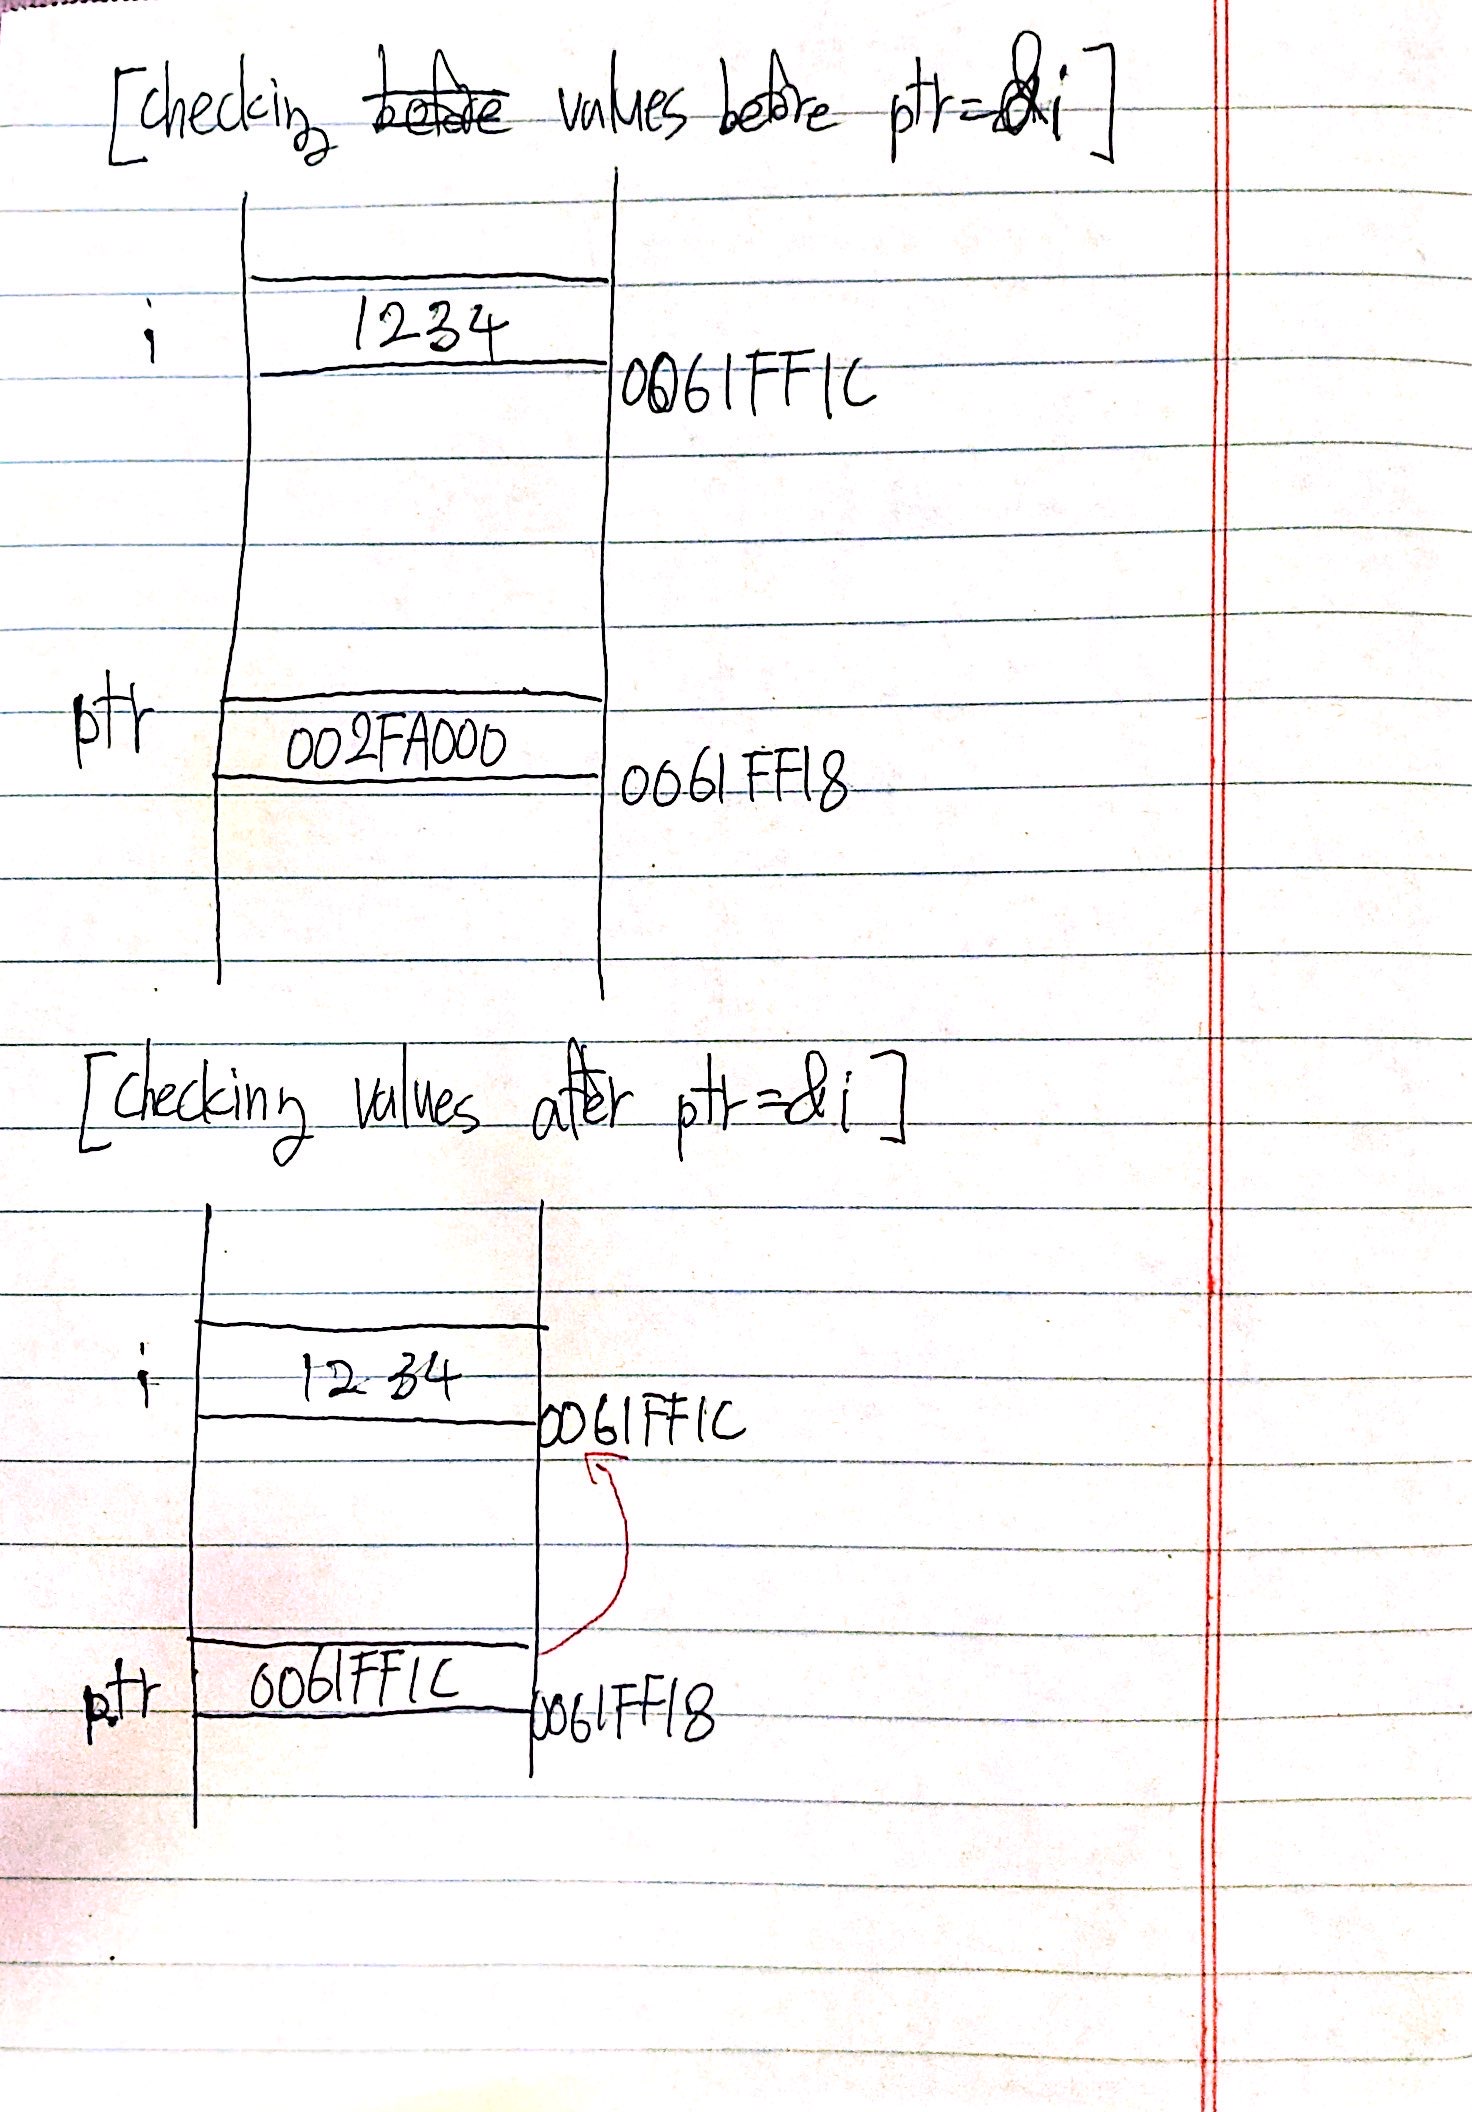 [checking before values before ptr=&i]
i 1234
0061FF1C
ptr 002FA000
0061FF18
[checking values after ptr=&i]
i 1234
0061FF1C
ptr 0061FF1C
0061FF18